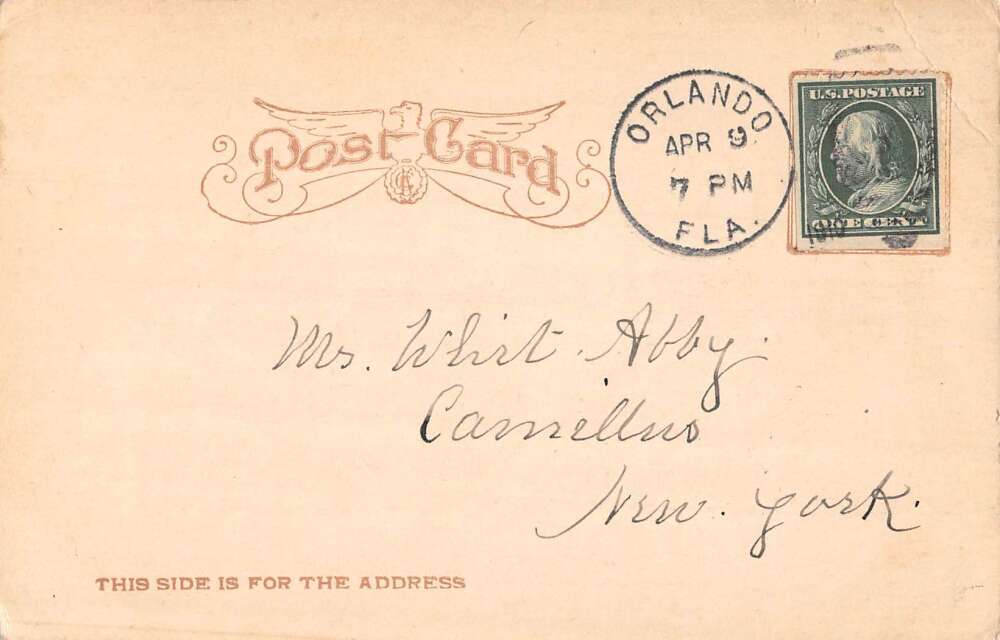 Post Card
ORLANDO
APR 9
7 PM
FLA.
U.S. POSTAGE
ONE CENT
Mrs. Whirt Abby.
Camillus
New. York.
THIS SIDE IS FOR THE ADDRESS